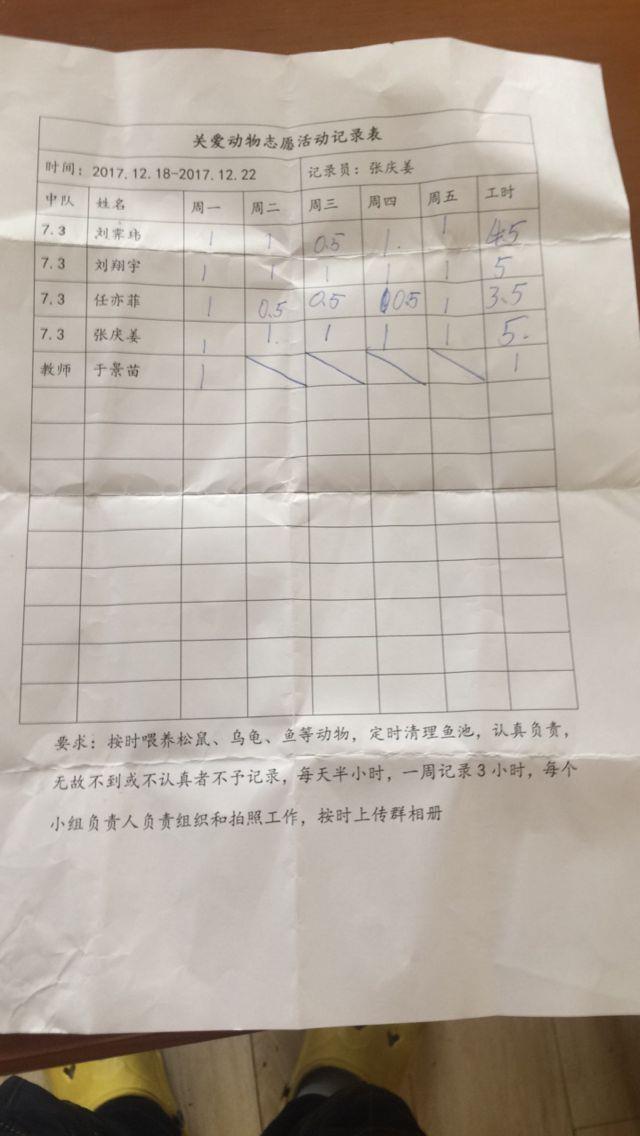 关爱动物志愿活动记录表
时间：2017.12.18-2017.12.22 记录员：张庆姜
中队 姓名 周一 周二 周三 周四 周五 工时
7.3 刘霁玮 1 1 0.5 1. 1 4.5
7.3 刘翔宇 1 1 1 1 1 5
7.3 任亦菲 1 0.5 0.5 0.5 1 3.5
7.3 张庆姜 1 1. 1 1 1 5.
教师 于景苗 1 1
要求：按时喂养松鼠、乌龟、鱼等动物，定时清理鱼池，认真负责，
无故不到或不认真者不予记录，每天半小时，一周记录3小时，每个
小组负责人负责组织和拍照工作，按时上传群相册